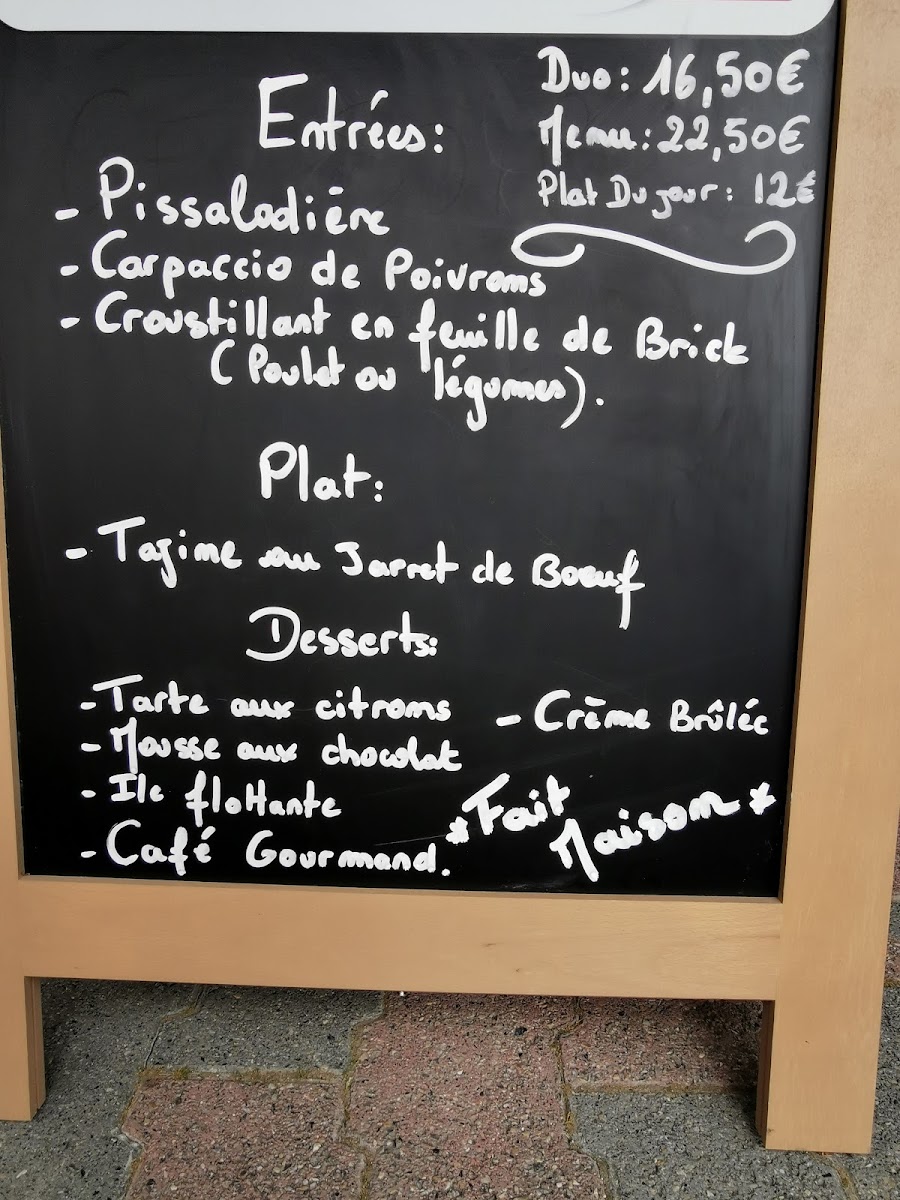 Duo: 16,50€
Menu: 22,50€
Plat Du jour: 12€
Entrées:
- Pissaladière
- Carpaccio de Poivrons
- Croustillant en feuille de Brick
(Poulet ou légumes).
Plat:
- Tajine au Jarret de Boeuf
Desserts:
- Tarte aux citrons
- Mousse aux chocolat
- Ile flottante
- Café Gourmand.
- Crème Brûlée
* Fait
Maison *